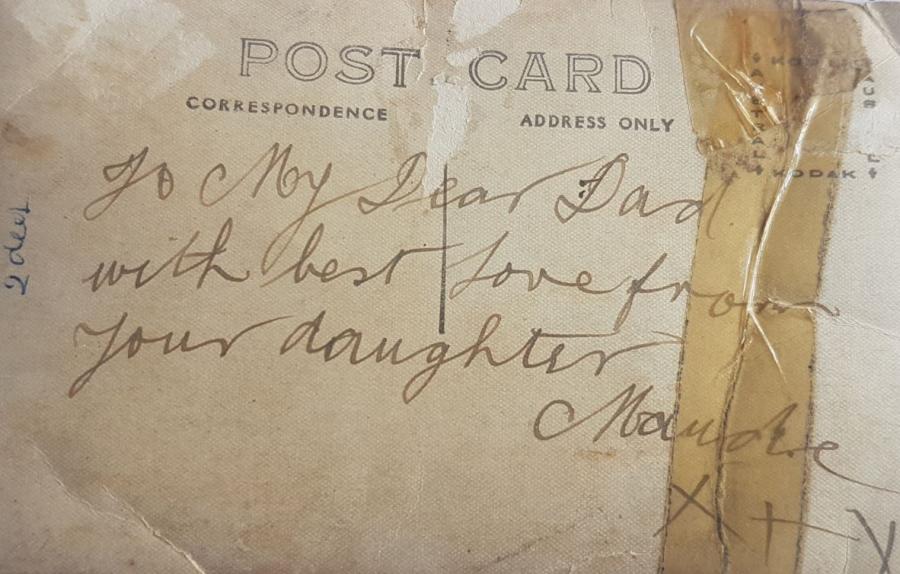 POST CARD
CORRESPONDENCE
ADDRESS ONLY
To My Dear Dad
with best Love from
Your daughter
Maude
X + X
KODAK
AUSTRAL
KODAK